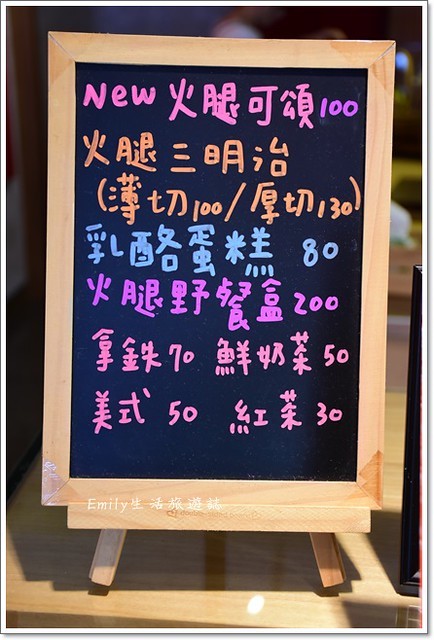 New 火腿可頌100
火腿三明治
(薄切100/厚切130)
乳酪蛋糕 80
火腿野餐盒200
拿鉄70 鮮奶茶50
美式 50 紅茶30
Emily生活旅遊誌